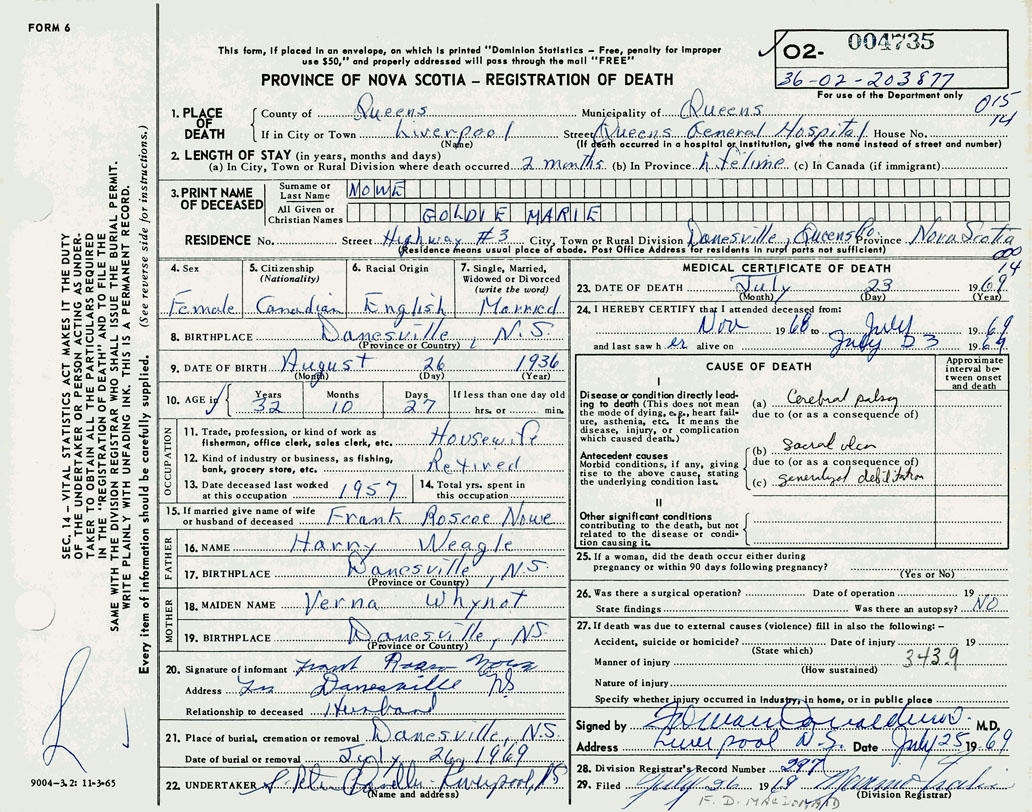 FORM 6
This form, if placed in an envelope, on which is printed "Dominion Statistics – Free, penalty for improper
use $50," and properly addressed will pass through the mail "FREE"
PROVINCE OF NOVA SCOTIA – REGISTRATION OF DEATH
O2- 004735
36-02-203877
For use of the Department only
015
14
1. PLACE OF DEATH
County of Queens Municipality of Queens
If in City or Town Liverpool Street Queens General Hospital House No.
(Name) (If death occurred in a hospital or institution, give the name instead of street and number)
2. LENGTH OF STAY (in years, months and days)
(a) In City, Town or Rural Division where death occurred 2 months (b) In Province lifetime (c) In Canada (if immigrant)
3. PRINT NAME OF DECEASED
Surname or Last Name NOWE
All Given or Christian Names GOLDIE MARIE
RESIDENCE No. Street Highway #3 City, Town or Rural Division Danesville, Queens Co. Province Nova Scotia
(Residence means usual place of abode. Post Office Address for residents in rural parts not sufficient)
000
14
4. Sex 5. Citizenship (Nationality) 6. Racial Origin 7. Single, Married, Widowed or Divorced (write the word)
Female Canadian English Married
8. BIRTHPLACE Danesville, N.S.
(Province or Country)
9. DATE OF BIRTH August 26 1936
(Month) (Day) (Year)
10. AGE in Years Months Days If less than one day old
32 10 27 hrs. or min.
OCCUPATION
11. Trade, profession, or kind of work as fisherman, office clerk, sales clerk, etc. Housewife
12. Kind of industry or business, as fishing, bank, grocery store, etc. Retired
13. Date deceased last worked at this occupation 1957 14. Total yrs. spent in this occupation
15. If married give name of wife or husband of deceased Frank Roscoe Nowe
FATHER
16. NAME Harry Weagle
17. BIRTHPLACE Danesville, N.S.
(Province or Country)
MOTHER
18. MAIDEN NAME Verna Whynot
19. BIRTHPLACE Danesville, NS.
(Province or Country)
20. Signature of informant Frank Roscoe Nowe
Address Danesville NS
Relationship to deceased Husband
21. Place of burial, cremation or removal Danesville, N.S.
Date of burial or removal July 26, 1969
22. UNDERTAKER Liverpool, NS
(Name and address)
MEDICAL CERTIFICATE OF DEATH
23. DATE OF DEATH July 23 1969
(Month) (Day) (Year)
24. I HEREBY CERTIFY that I attended deceased from:
Nov 1968 to July 1969
and last saw her alive on July 23 1969
CAUSE OF DEATH
Approximate interval between onset and death
I
Disease or condition directly leading to death (This does not mean the mode of dying, e.g., heart failure, asthenia, etc. It means the disease, injury, or complication which caused death.)
(a) Cerebral palsy
due to (or as a consequence of)
Antecedent causes
Morbid conditions, if any, giving rise to the above cause, stating the underlying condition last.
(b) sacral ulcer
due to (or as a consequence of)
(c) generalized debilitation
II
Other significant conditions contributing to the death, but not related to the disease or condition causing it.
25. If a woman, did the death occur either during
pregnancy or within 90 days following pregnancy?
(Yes or No)
26. Was there a surgical operation? Date of operation 19
State findings Was there an autopsy? NO
27. If death was due to external causes (violence) fill in also the following: –
Accident, suicide or homicide? Date of injury 19
(State which)
Manner of injury 343.9
(How sustained)
Nature of injury
Specify whether injury occurred in Industry, in home, or in public place
Signed by M.D.
Address Liverpool N.S. Date July 25 1969
28. Division Registrar's Record Number 297
29. Filed July 26 1969
(Division Registrar)
F. D. MACDONALD
SEC. 14 – VITAL STATISTICS ACT MAKES IT THE DUTY
OF THE UNDERTAKER OR PERSON ACTING AS UNDER-
TAKER TO OBTAIN ALL THE PARTICULARS REQUIRED
IN THE "REGISTRATION OF DEATH" AND TO FILE THE
SAME WITH THE DIVISION REGISTRAR WHO SHALL ISSUE THE BURIAL PERMIT.
WRITE PLAINLY WITH UNFADING INK. THIS IS A PERMANENT RECORD.
Every item of information should be carefully supplied. (See reverse side for instructions.)
9004–3.2: 11-3-65